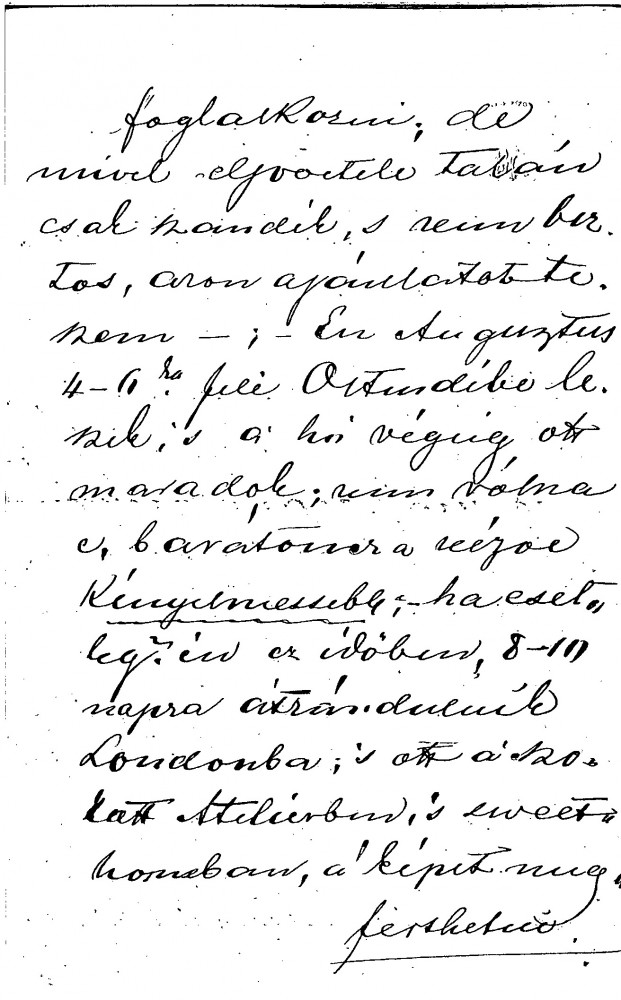 foglalkozni; de
mivel eljövetele talán
csak szándék, s nem biz-
tos, azon ajánlatot te-
szem – ; – Én Augusztus
4–6ra felé Ostendébe le-
szek; s a' hó végéig ott
maradok; nem vólna
e, barátomra nézve
Kényelmessebb; – ha eset-
leg én ez időben, 8–10
napra átrándulnék
Londonba; 's ott a'
Atelierben, 's sweet-
homeban, a' képet meg-
festhetné.